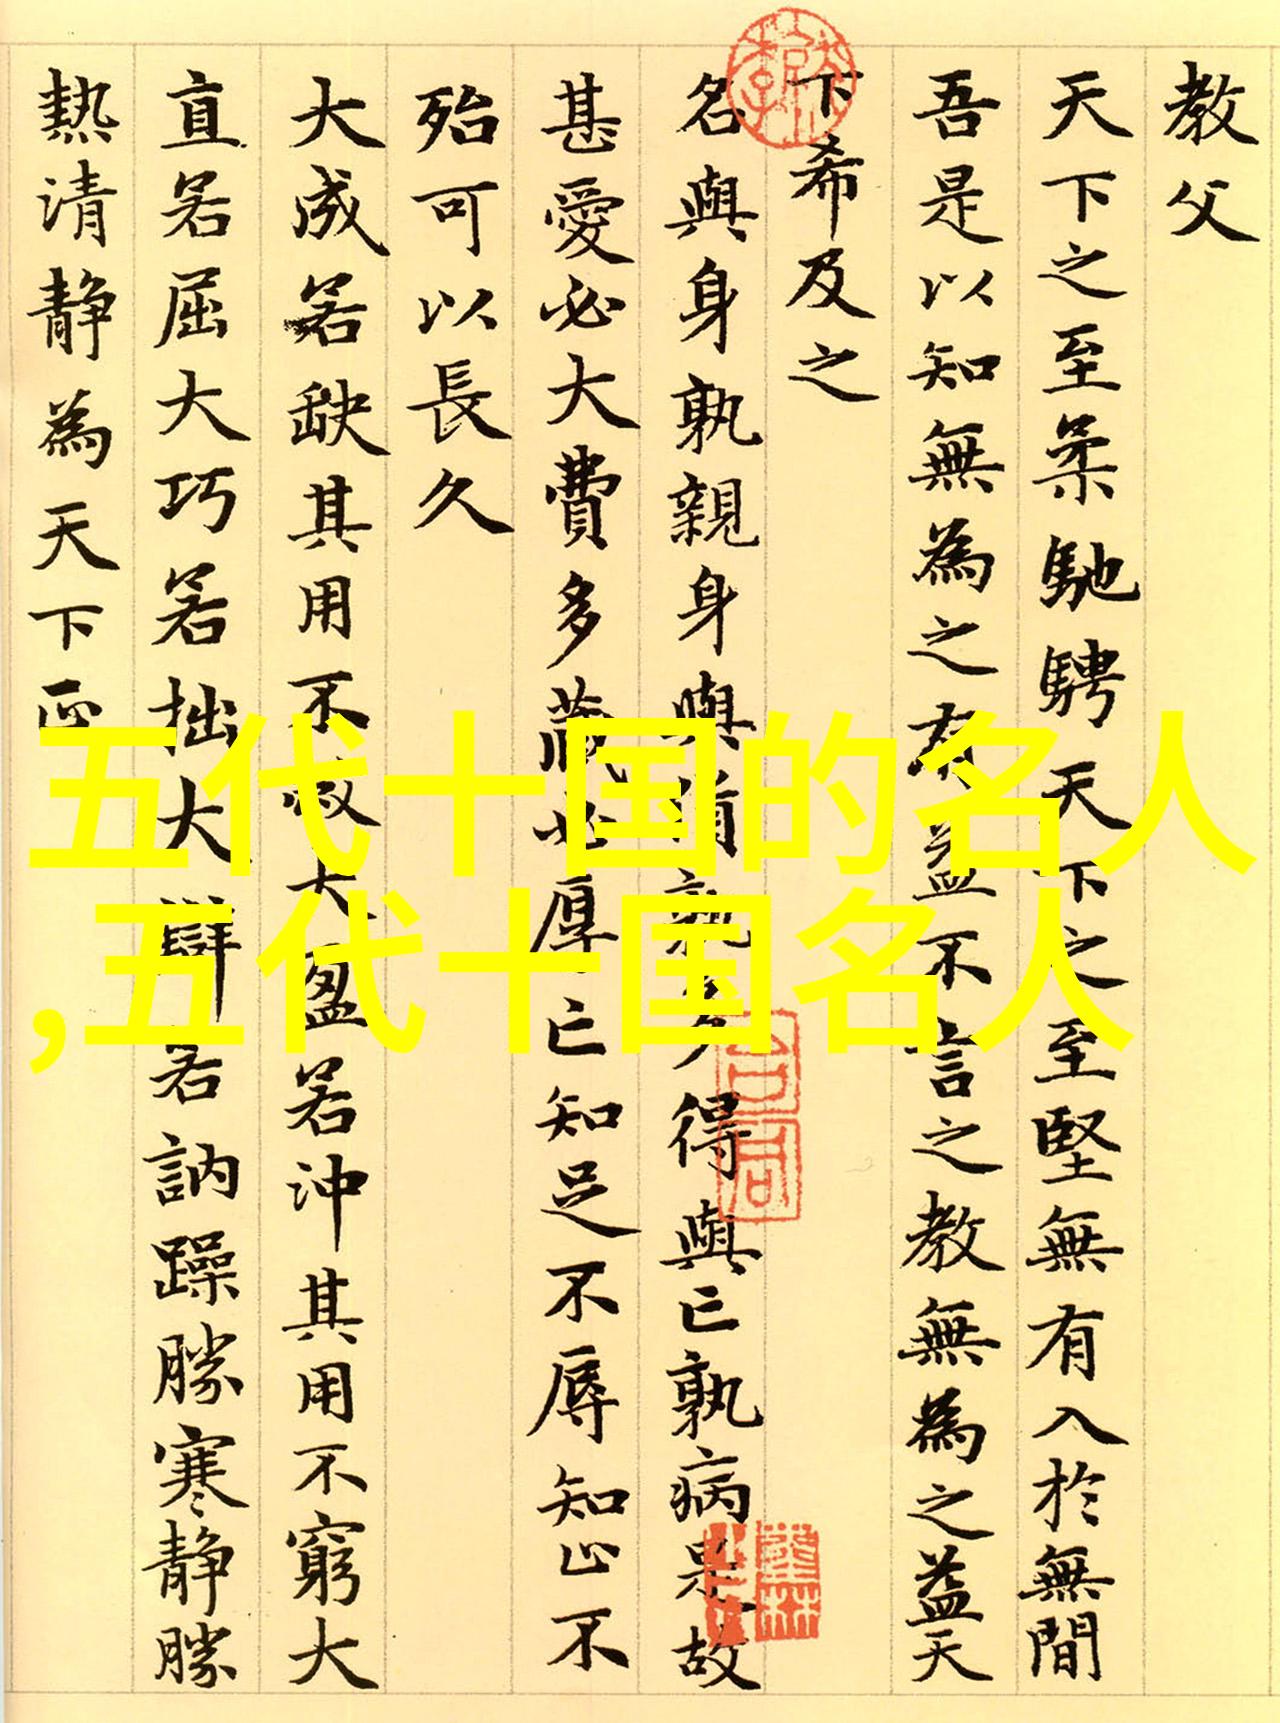 教父
天下之至柔馳騁天下之至堅無有入於無間
吾是以知無為之有益不言之教無為之益天
下希及之
名與身孰親身與貨孰多得與亡孰病是故
甚愛必大費多藏必厚亡知足不辱知止不
殆可以長久
大成若缺其用不敝大盈若沖其用不窮大
直若屈大巧若拙大辯若訥躁勝寒静勝
熱清静為天下正
五代十国的名人
,五代十国名人